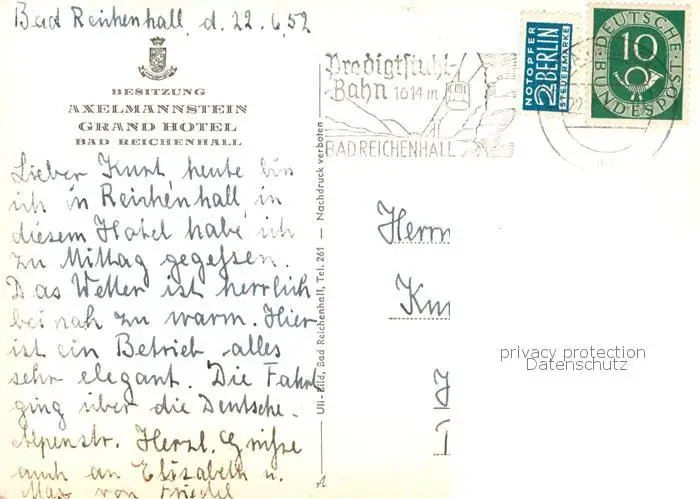 Bad Reichenhall, d. 22.6.52
BESITZUNG
AXELMANNSTEIN
GRAND HOTEL
BAD REICHENHALL
Lieber Kurt, heute bin
ich in Reichenhall, in
diesem Hotel habe ich
zu Mittag gegessen.
Das Wetter ist herrlich
bei nah zu warm. Hier
ist ein Betrieb, alles
sehr elegant. Die Fahrt
ging über die Deutsche-
Alpenstr. Herzl. Grüsse
auch an Elisabeth u.
Max von Friedel
Uli-Bild, Bad Reichenhall, Tel. 261 — Nachdruck verboten
Predigtstuhl-
Bahn 1614 m
BAD REICHENHALL
NOTOPFER
2 BERLIN
STEUERMARKE
DEUTSCHE
10
BUNDESPOST
Herrn
Ku
privacy protection
Datenschutz